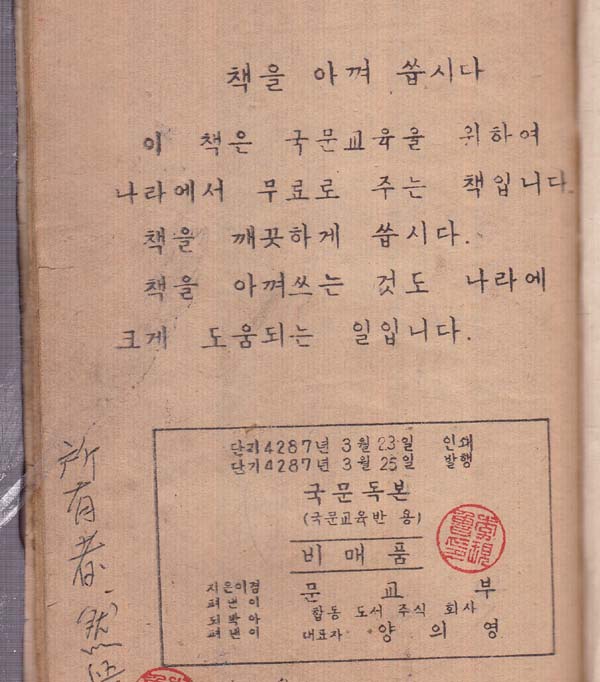 책을 아껴 씁시다
이 책은 국문교육을 위하여
나라에서 무료로 주는 책입니다.
책을 깨끗하게 씁시다.
책을 아껴쓰는 것도 나라에
크게 도움되는 일입니다.
단기4287년 3월 23일 인쇄
단기4287년 3월 25일 발행
국문독본
(국문교육반 용)
비매품
지은이겸
펴낸이 문교부
되박아 합동 도서 주식 회사
펴낸이 대표자 양의영
所有者